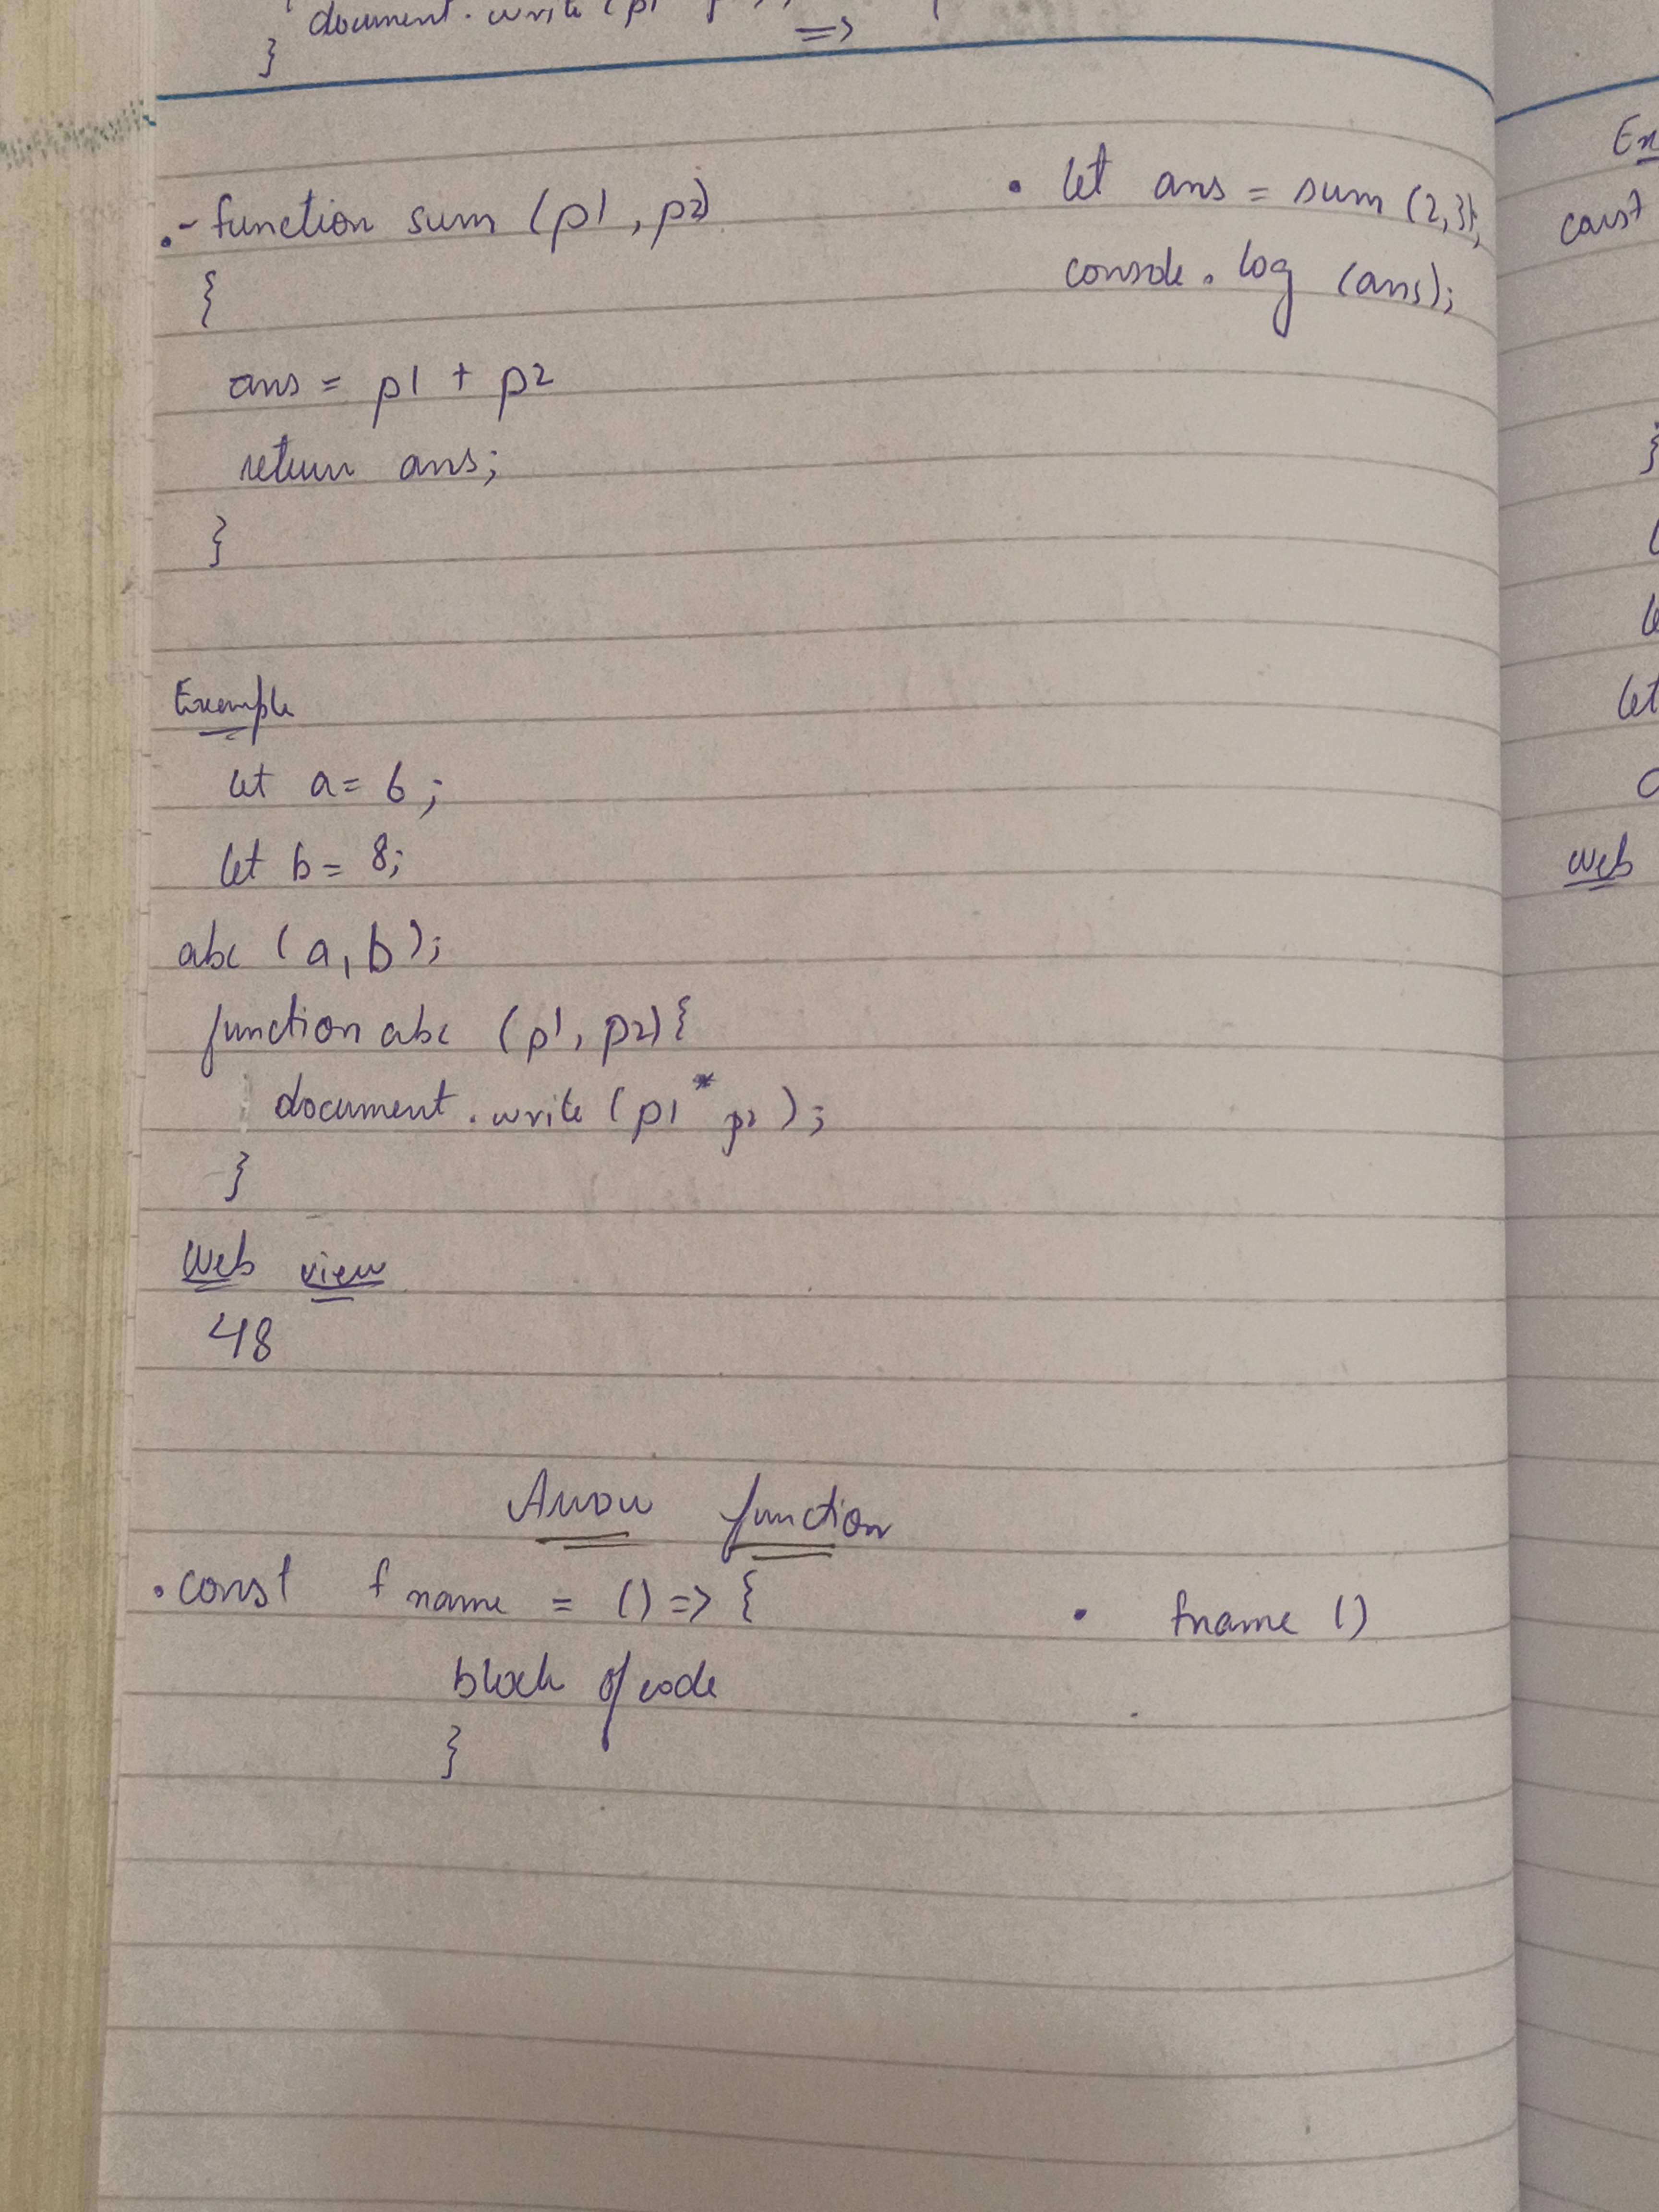 document.write (p1
=>
}
.- function sum (p1, p2)
{
ans = p1 + p2
return ans;
}
• let ans = sum (2,3);
console.log (ans);
Example
let a = 6;
let b = 8;
abc (a, b);
function abc (p1, p2) {
document.write (p1 * p2);
}
Web view
48
Arrow function
• const fname = () => {
block of code
}
• fname ()
Ex
const
}
let
Web